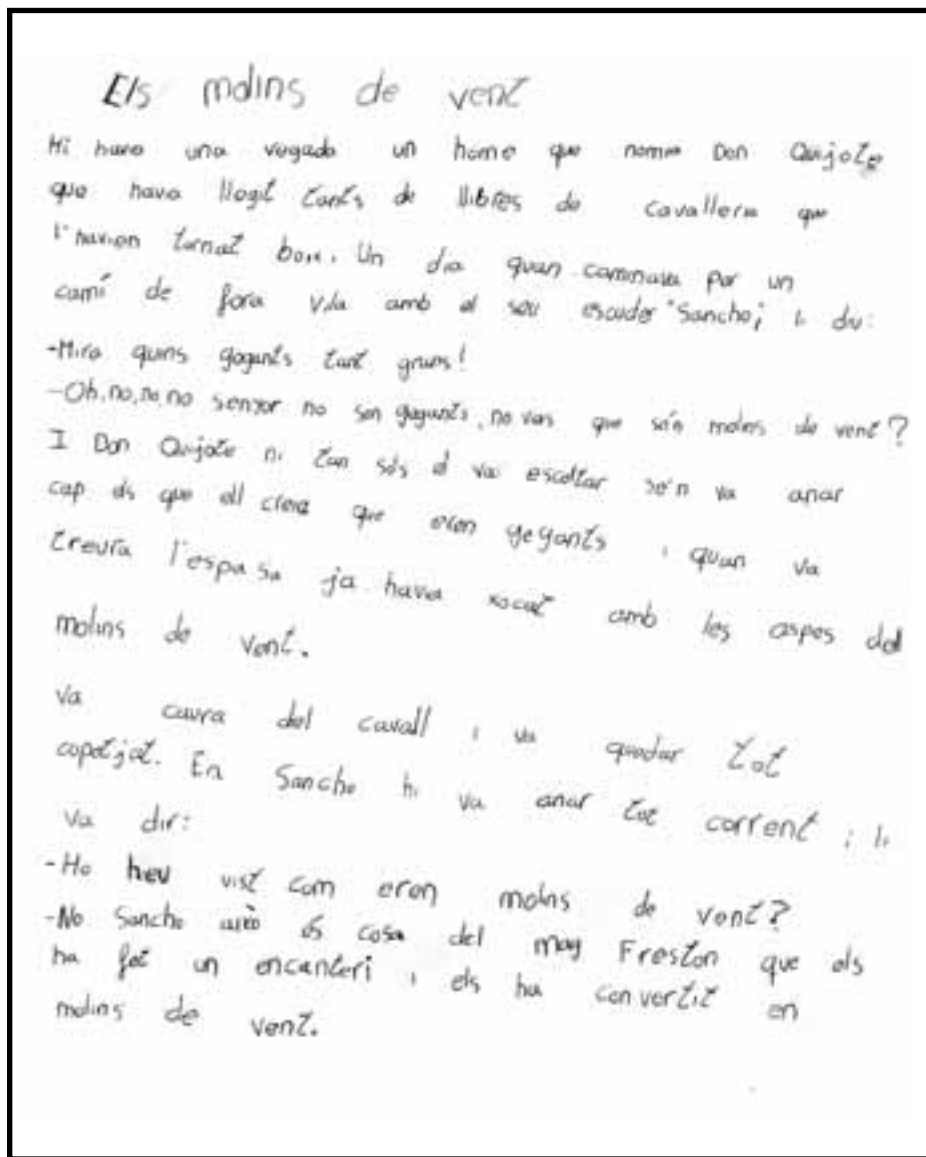 Els molins de vent
Hi hava una vegada un home que nomia Don Quijote
que havia llegit tants de llibres de cavalleria que
l'havien turnat boix. Un dia quan caminava per un
camí de fora vila amb el seu escuder "Sancho; li diu:
-Mira quins gegants tant grans!
-Oh, no, no, no senyor no son gegants, no veis que són molins de vent?
I Don Quijote ni tan sòs el va escoltar se'n va anar
cap ds que ell creia que eren gegants i quan va
treura l'espasa ja havia xocat amb les aspes del
molins de vent.
Va caura del cavall i va quedar tot
copetjat. En Sancho hi va anar tot corrent i li
va dir:
-Ho heu vist com eren molins de vent?
-No Sancho això és cosa del mag Freston que els
ha fet un encanteri i els ha convertit en
molins de vent.